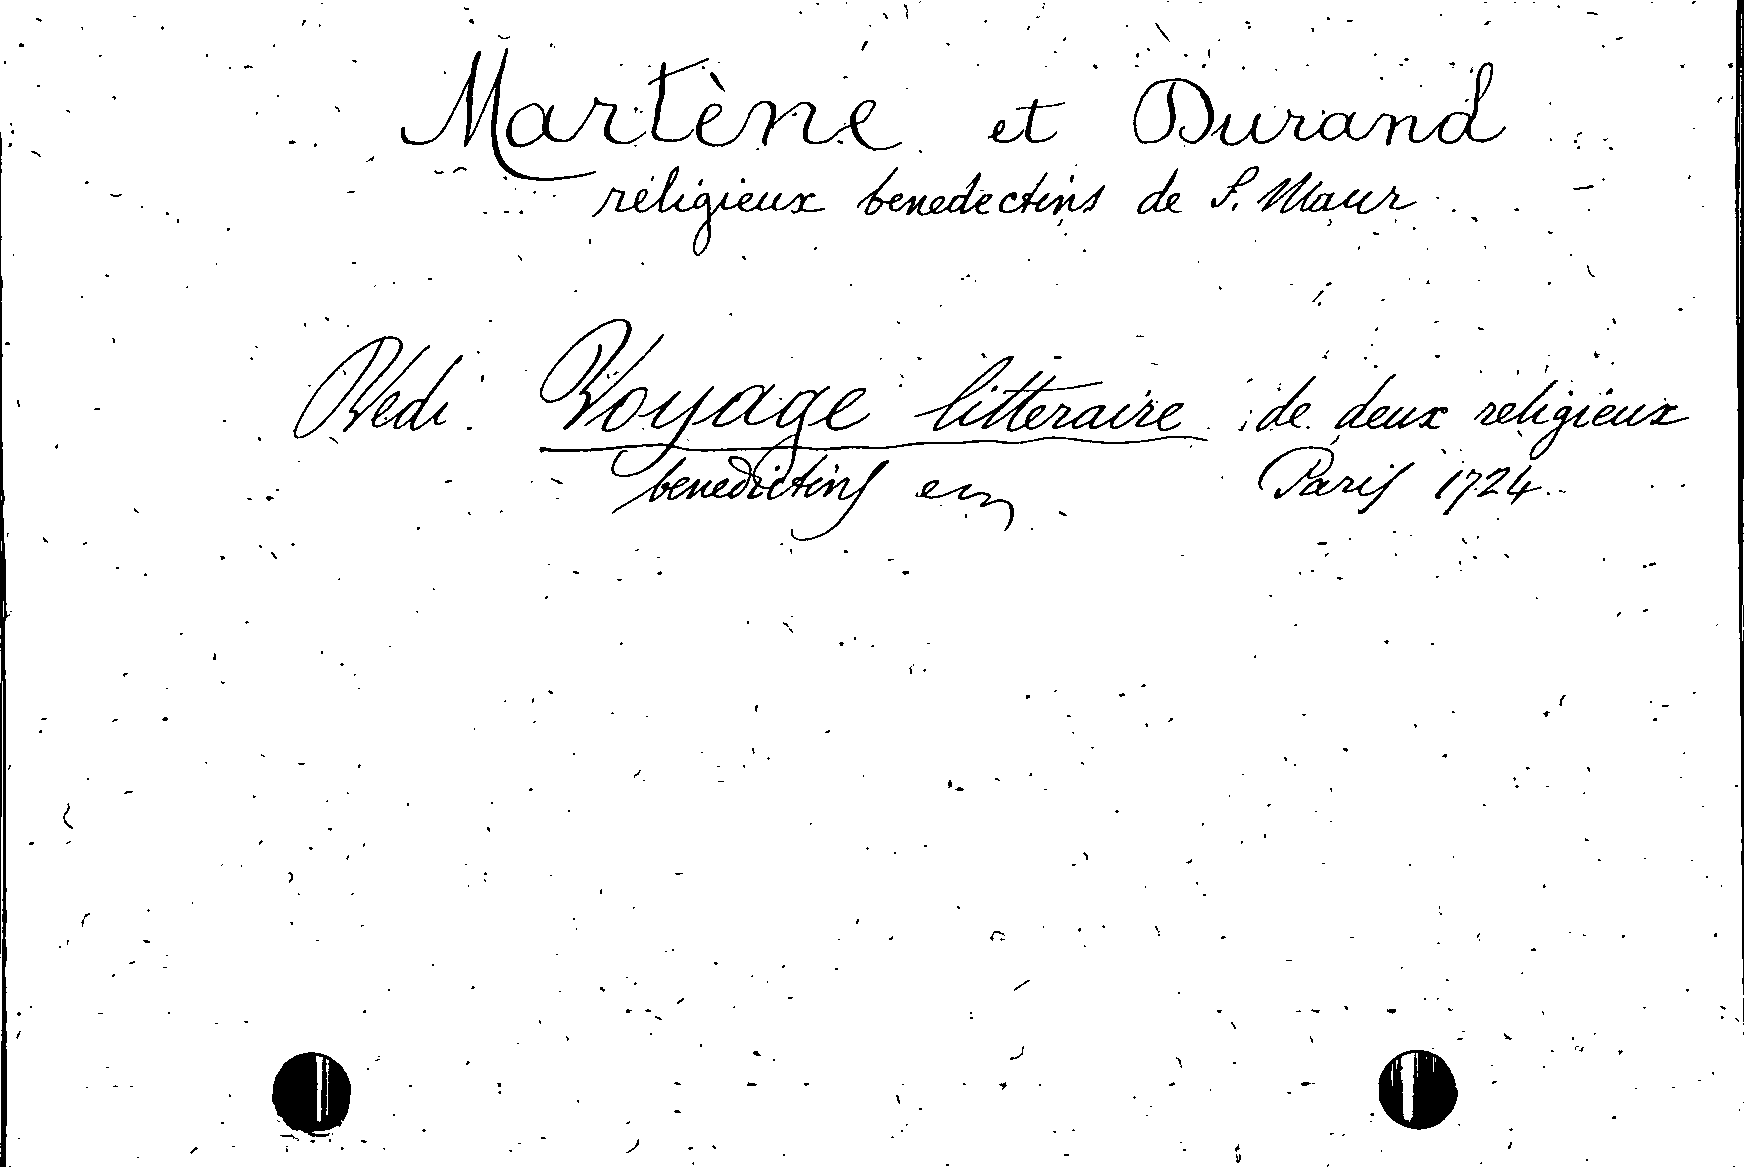 Martène et Durand
religieux benedectins de S. Maur
Vedi Voyage litteraire de deux religieux
benedictins Paris 1724